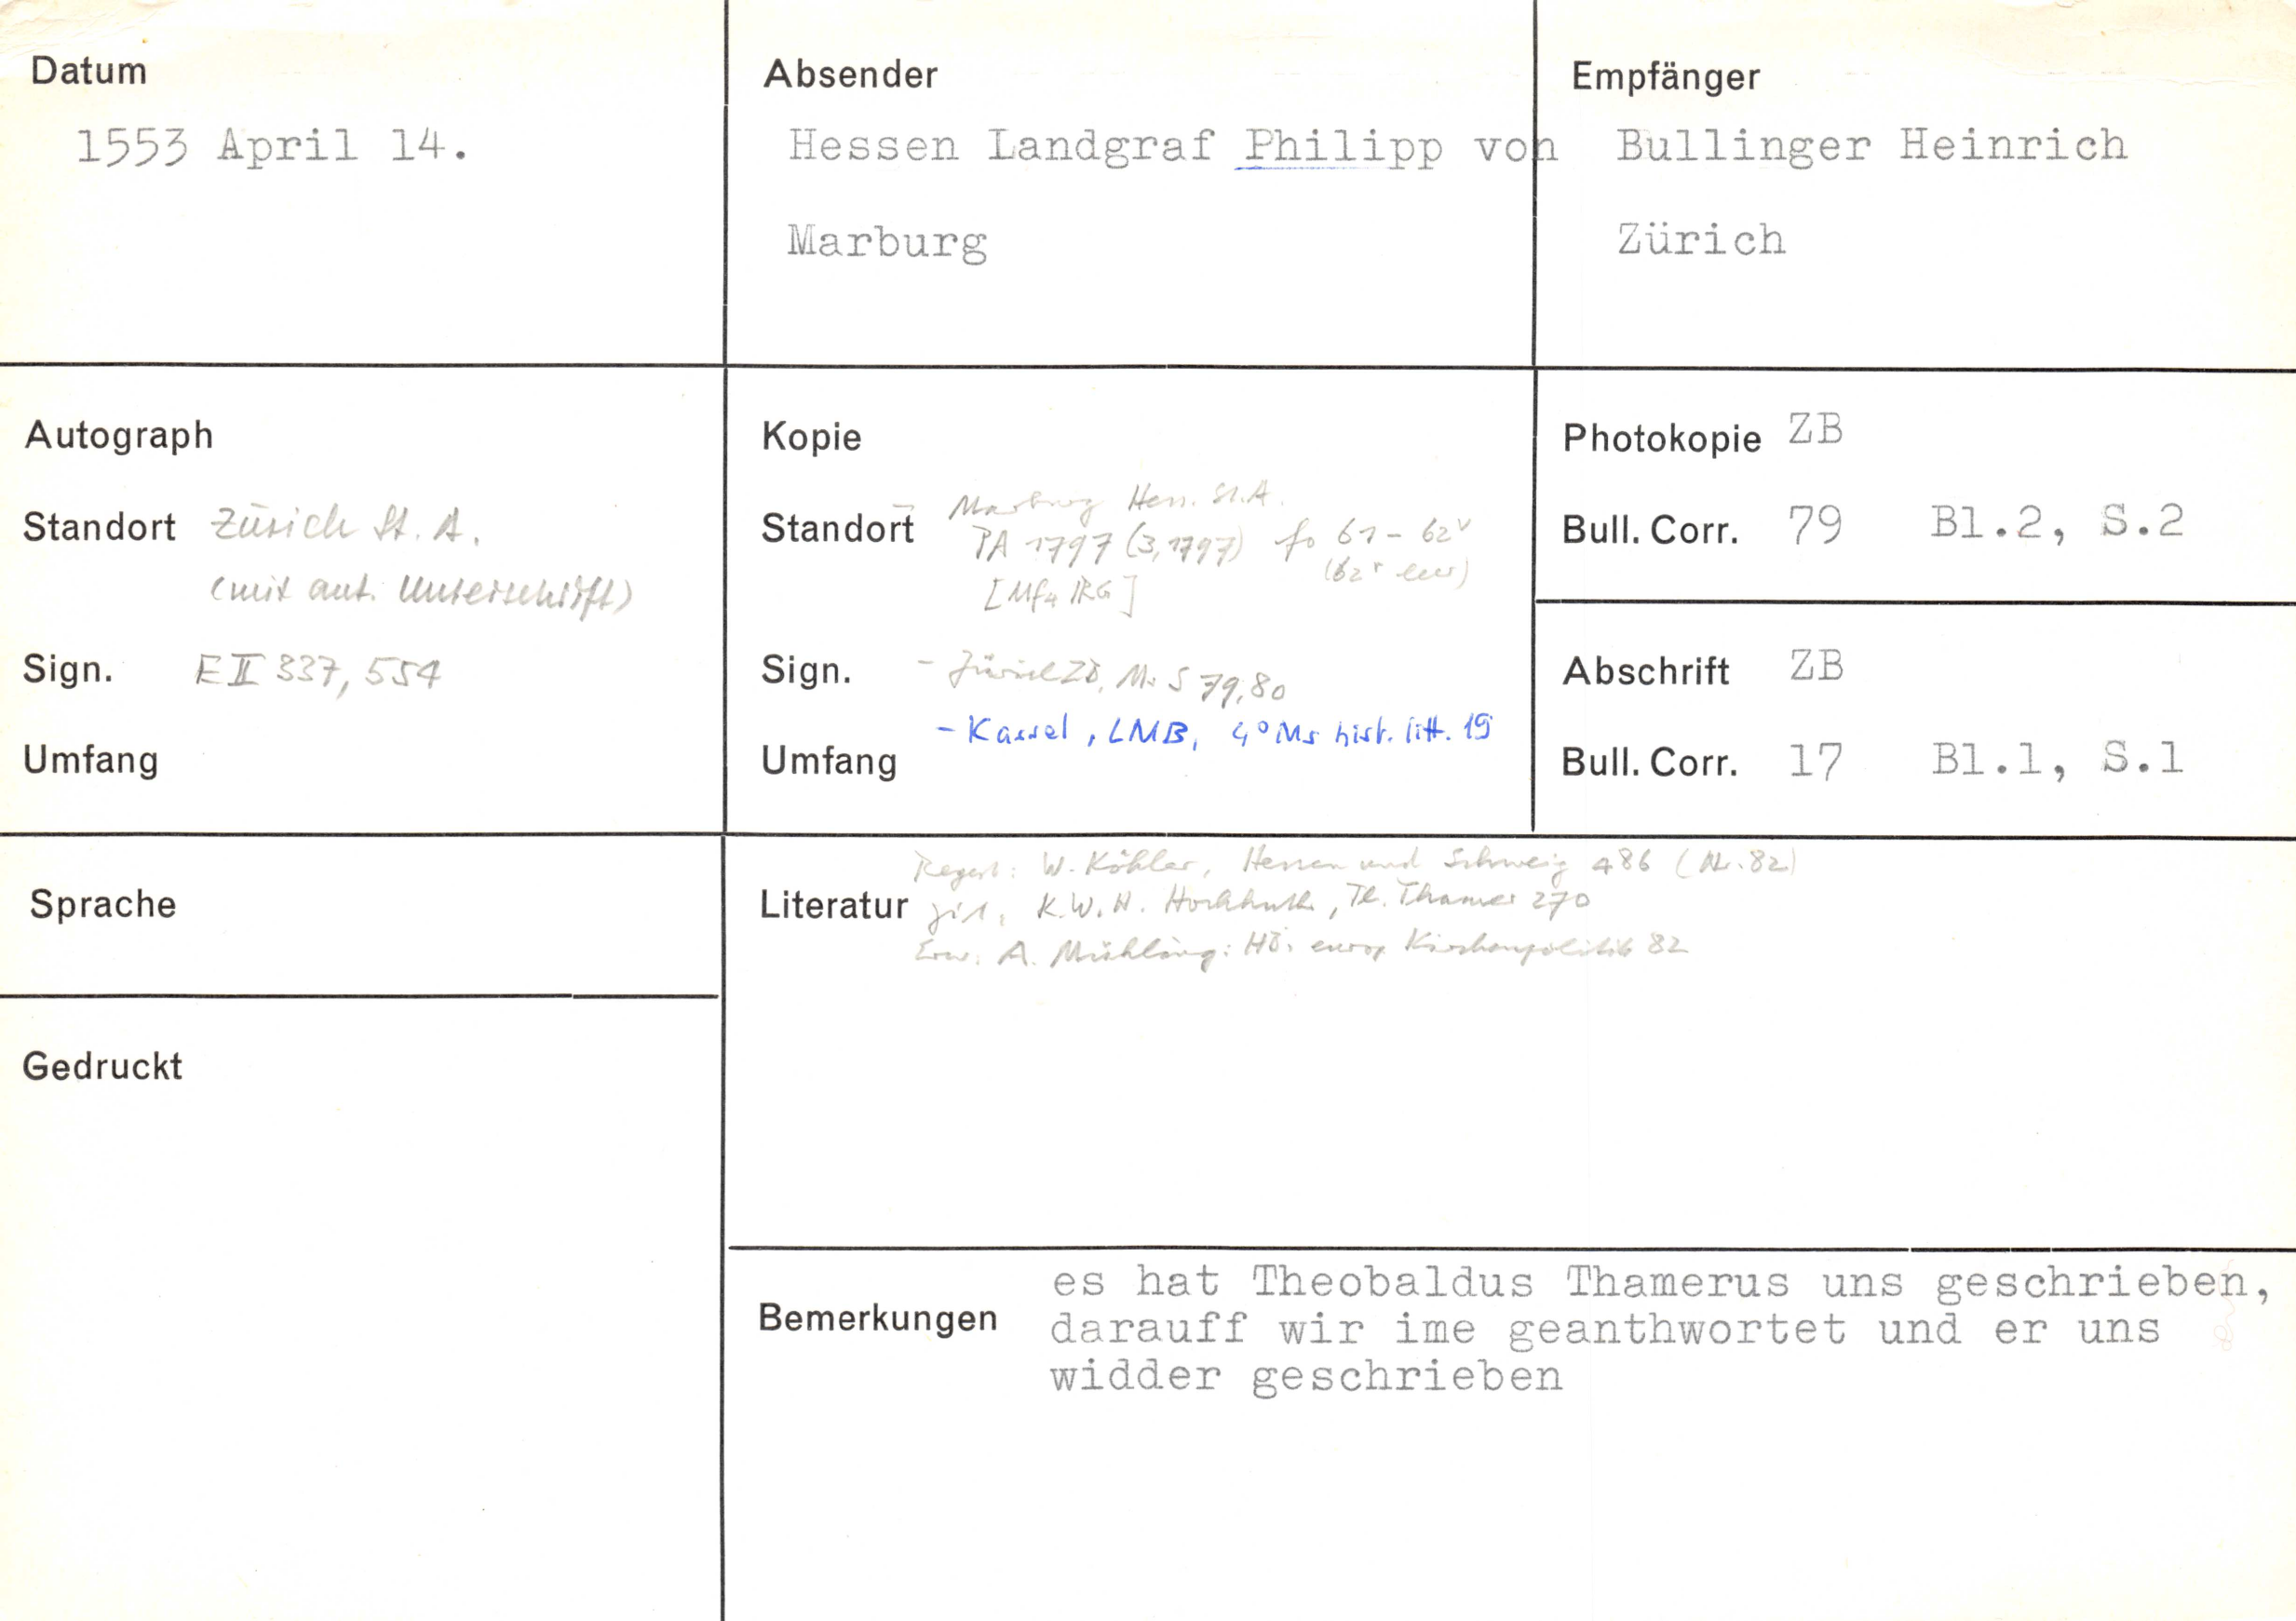 Datum
1553 April 14.
Absender
Hessen Landgraf Philipp von
Marburg
Empfänger
Bullinger Heinrich
Zürich
Autograph
Standort Zürich St. A.
(mit aut. Unterschrift)
Sign. E II 337, 554
Umfang
Kopie
Standort - Marburg Hess. St.A.
PA 1797 (3,1797) fo 61 - 62v
(62r leer)
[Mf IRG]
Sign. - Zürich ZB, Ms S 79,80
- Kassel, LMB, 4° Ms hist. litt. 19
Umfang
Photokopie ZB
Bull. Corr. 79 Bl.2, S.2
Abschrift ZB
Bull. Corr. 17 Bl.1, S.1
Sprache
Gedruckt
Regest: W. Köhler, Hessen und Schweiz 486 (Nr. 82)
Literatur zit. K.W.H. Hochhuth, Th. Thamer 270
Erw. A. Mühling: HB's europ Kirchenpolitik 82
Bemerkungen
es hat Theobaldus Thamerus uns geschrieben,
darauff wir ime geanthwortet und er uns
widder geschrieben